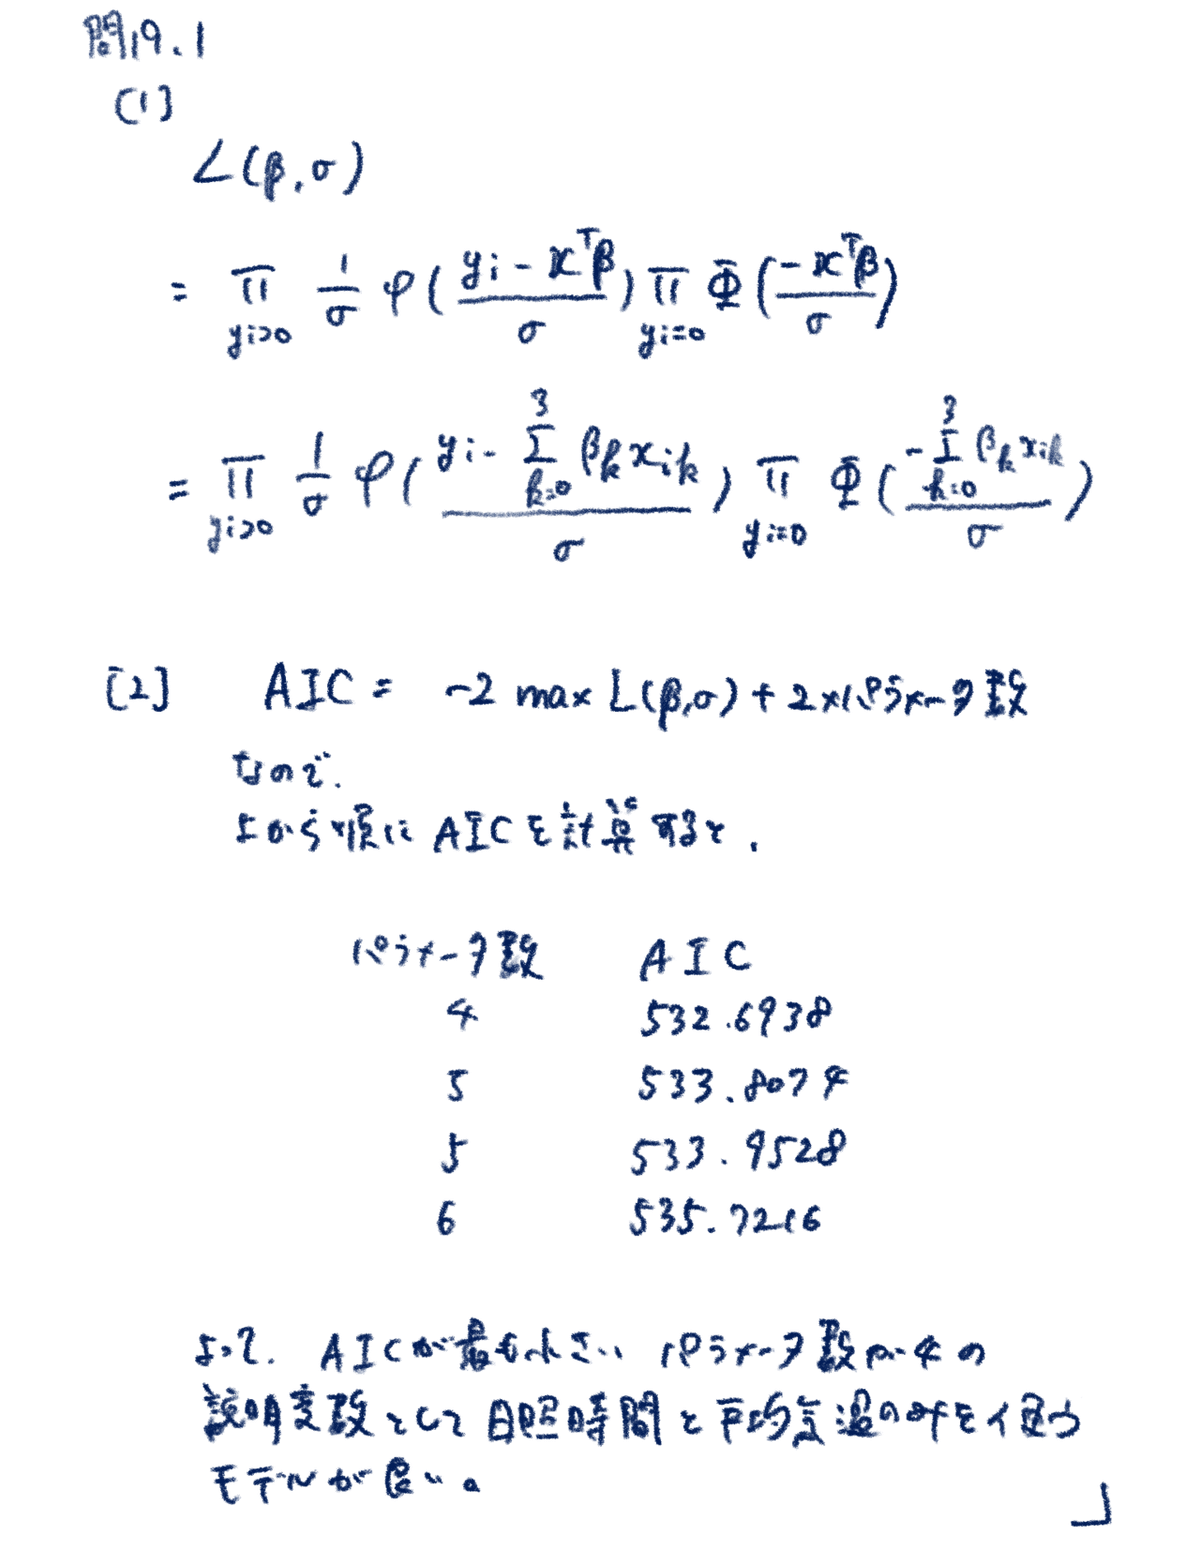 問19.1
[1]
L(β,σ)
= Π_{yi>0} 1/σ φ((yi - x^Tβ)/σ) Π_{yi=0} Φ((-x^Tβ)/σ)
= Π_{yi>0} 1/σ φ((yi - Σ_{k=0}^{3} βk xik)/σ) Π_{yi=0} Φ((-Σ_{k=0}^{3} βk xik)/σ)
[2] AIC = -2 max L(β,σ) + 2×パラメータ数
なので.
上から順に AICを計算すると.
パラメータ数 AIC
4 532.6938
5 533.8074
5 533.9528
6 535.7216
よって. AICが最も小さい パラメータ数が4の
説明変数として日照時間と平均気温のみを使う
モデルが良い。